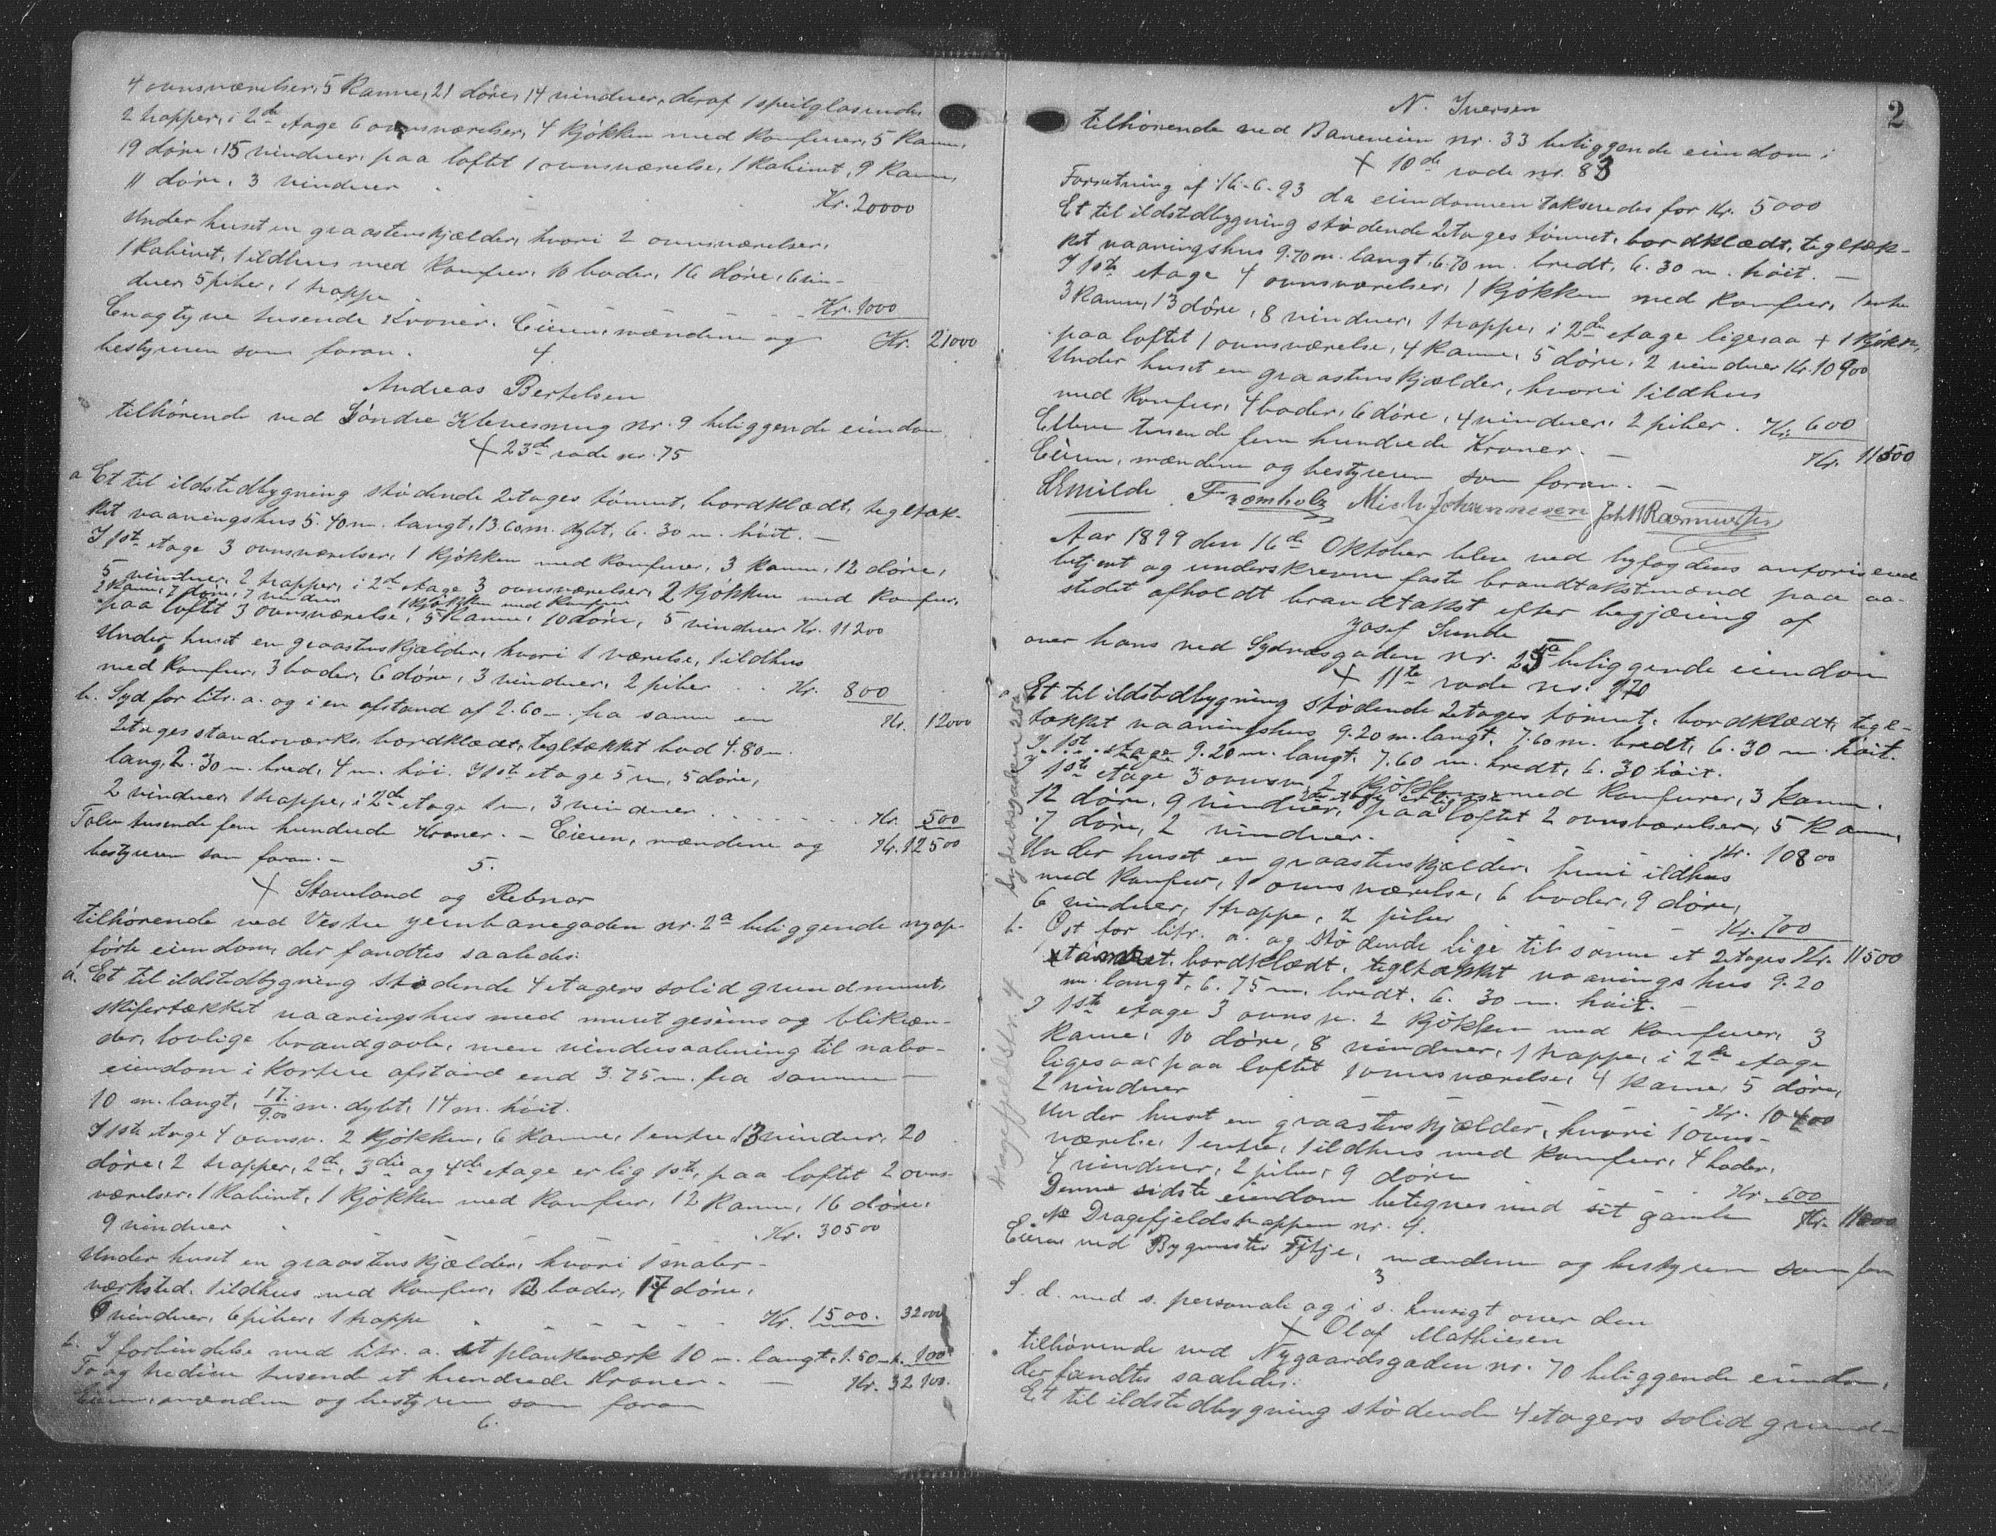 4 ovnsværelser, 5 kamre, 21 døre, 14 vinduer, deraf 1 speilglasvindu
2 trapper, i 2de etage 6 ovnsværelser, 4 kjøkken med komfurer, 5 kamre,
19 døre, 15 vinduer, paa loftet 1 ovnsværelse, 1 kabinet, 9 kamre,
11 døre, 3 vinduer Kr. 20000
Under huset en graastenskjælder, hvori 2 ovnsværelser,
1 kabinet, 1 ildhus med komfur, 10 boder, 16 døre, 6 vin-
duer, 5 piber, 1 trappe Kr. 1000
Enogtyve tusende Kroner. Eieren, mændene og Kr. 21000
bestyreren som foran.
4.
Andreas Bertelsen
tilhørende ved Søndre Klevesmug nr. 9 beliggende eiendom
+ 23de rode nr. 75
a Et til ildstedbygning stødende 2etages tømret, bordklædt, tegltæk-
ket vaaningshus 5.40 m. langt, 13.60 m. dybt, 6.30 m. høit. —
I 1ste etage 3 ovnsværelser, 1 kjøkken med komfurer, 3 kamre, 12 døre,
5 vinduer, 2 trapper, i 2de etage 3 ovnsværelser, 2 kjøkken med komfur,
2 kamre, 7 døre, 7 vinduer 1 kjøkken med komfur
paa loftet 3 ovnsværelse, 5 kamre, 10 døre, 5 vinduer Kr. 11200
Under huset en graastenskjælder, hvori 1 værelse, 1 ildhus
med komfur, 3 boder, 6 døre, 3 vinduer, 2 piber . . Kr. 800
b. Syd for litr. a. og i en afstand af 2.60 m. fra samme en Kr. 12000
2etages standerværks, bordklædt, tegltækket bod 4.80 m.
lang, 2.30 m. bred, 4 m. høi. I 1ste etage 5 m, 5 døre,
2 vinduer, 1 trappe, i 2de etage 1 m, 3 vinduer . . . . . Kr. 500
Tolv tusende fem hundrede Kroner. — Eieren, mændene og Kr. 12500
bestyreren som foran. —
5.
+ Staveland og Rebnor
tilhørende ved Vestre jernbanegaden nr. 2a beliggende nyop-
førte eiendom, der fandtes saaledes:
a. Et til ildstedbygning stødende 4 etagers solid grundmuret,
skifertækket vaaningshus med muret gesims og blikren-
der, lovlige brandgavle, men vindusaabning til nabo-
eiendom i kortere afstand end 3.75 m. fra samme —
10 m. langt, 17./9.00 m. dybt, 14 m. høit.
I 1ste etage 4 ovnsv. 2 kjøkken, 6 kamre, 1 entre, 13 vinduer, 20
døre, 2 trapper, 2de, 3die og 4de etage er lig 1ste, paa loftet 2 ovns-
værelser, 1 kabinet, 1 kjøkken med komfur, 12 kamre, 16 døre,
9 vinduer Kr. 30500
Under huset en graastenskjælder, hvori 1 maler-
værksted, 1 ildhus med komfur, 12 boder, 17 døre,
6 vinduer, 6 piber, 1 trappe Kr. 1500. 32000
b. I forbindelse med litr. a. et plankeværk 10 m. langt, 1.50 m. h. 100
To og tredive tusend et hundrede Kroner. — Kr. 32100.
Eieren, mændene og bestyreren som foran
6.
2
N. Iversen
tilhørende ved Baneveien nr. 33 beliggende eiendom i
+ 10de rode nr. 83
Forsætning af 16-6-93 da eiendommen takseredes for Kr. 5000
Et til ildstedbygning stødende 2etages tømret, bordklædt, tegltæk-
ket vaaningshus 9.70 m. langt, 6.70 m. bredt, 6.30 m. høit. —
I 1ste etage 4 ovnsværelser, 1 kjøkken med komfur, 1 entre
3 kamre, 13 døre, 8 vinduer, 1 trappe, i 2de etage ligesaa + 1 kjøkn,
paa loftet 1 ovnsværelse, 4 kamre, 5 døre, 2 vinduer Kr. 10900
Under huset en graastenskjælder, hvori 1 ildhus
med komfur, 4 boder, 6 døre, 4 vinduer, 2 piber. Kr. 600
Elleve tusende fem hundrede Kroner. — Kr. 11500
Eieren, mændene og bestyreren som foran. —
CErnilde Fromholz Mich Johannessen Joh N Rasmussen
Aar 1899 den 16de Oktober blev ved byfogdens autoriserede
betjent og underskrevne faste brandtakstmænd paa aa-
stedet afholdt brandtakst efter begjæring af
Josef Sunde
over hans ved Sydnæsgaden nr. 25a beliggende eiendom
+ 11te rode nr. 970
a. Et til ildstedbygning stødende 2etages tømret, bordklædt, tegl-
tækket vaaningshus 9.20 m. langt, 7.60 m. bredt, 6.30 m. høit.
I 1ste etage 9.20 m. langt, 7.60 m. bredt, 6.30 høit.
I 1ste etage 3 ovnsv. 2 kjøkken med komfurer, 3 kamre.
12 døre, 9 vinduer, 2den etage er lig 1ste paa loftet 2 ovnsværelser, 5 kamre,
7 døre, 2 vinduer. Kr. 10800
Under huset en graastenskjælder, hvori ildhus
med komfur, 1 ovnsværelse, 6 boder, 9 døre,
6 vinduer, 1 trappe, 2 piber Kr. 700
b. Øst for litr. a. og stødende lige til samme et 2etages Kr. 11500
tømret, bordklædt, tegltækket vaaningshus 9.20
m. langt, 6.75 m. bredt, 6.30 m. høit. —
I 1ste etage 3 ovnsv. 2 kjøkken med komfurer, 3
kamre, 10 døre, 8 vinduer, 1 trappe, i 2de etage
ligesaa, paa loftet 1 ovnsværelse, 4 kamre, 5 døre,
2 vinduer Kr. 10400
Under huset en graastenskjælder, hvori 1 ovns-
værelse, 1 entre, 1 ildhus med komfur, 4 boder,
4 vinduer, 2 piber, 9 døre Kr. 600
Denne sidste eiendom betegnes med sit gamle Kr. 11000
No Dragefjeldstrappen nr. 4.
Eieren ved Bygmester Fitje, mændene og bestyreren som før
3
S. d. med s. personale og i s. hensigt over den
+ Olaf Mathiesen
tilhørende ved Nygaardsgaden nr. 70 beliggende eiendom,
der fandtes saaledes:
Et til ildstedbygning stødende 4 etagers solid grund-
Sydnæsgaden 25a
Dragefjeldstr. 4